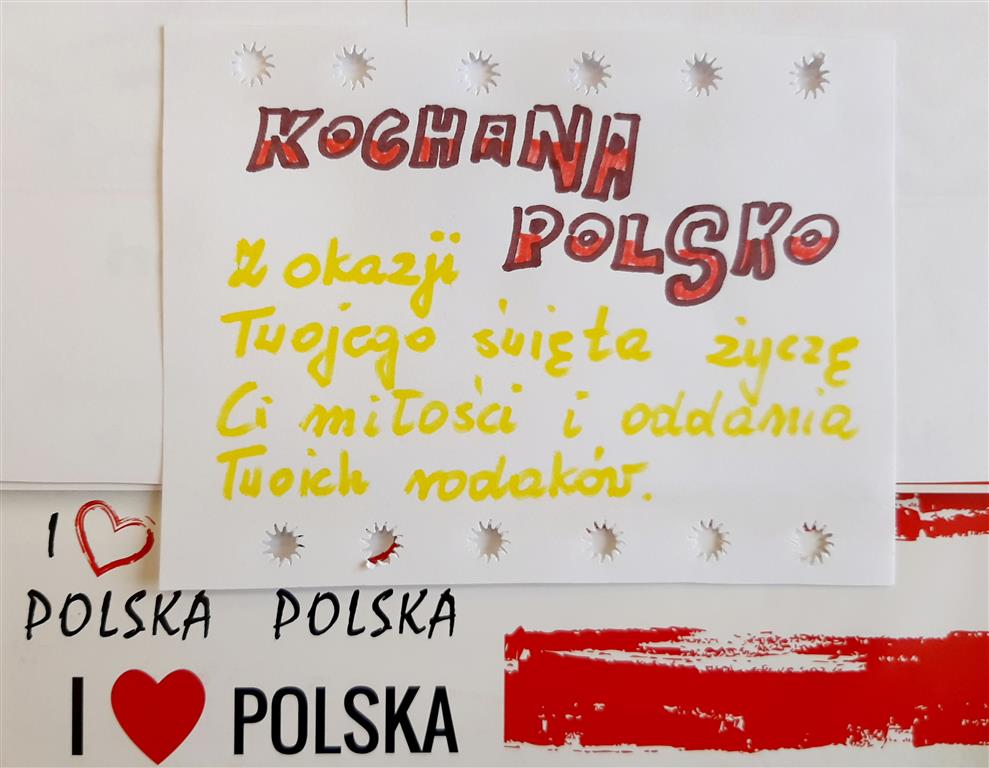 KOCHANA
POLSKO
Z okazji
Twojego święta życzę
Ci miłości i oddania
Twoich rodaków.
I
POLSKA POLSKA
I POLSKA